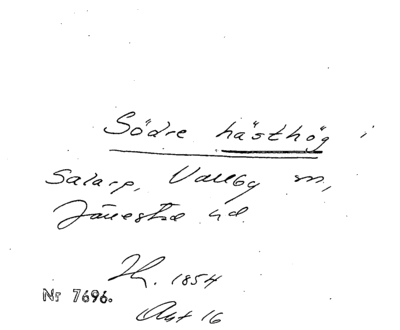 Södre hästhög i
Salarp, Vallby m,
Järrestad hd.
Th. 1854
Nr 7696.
Akt 16